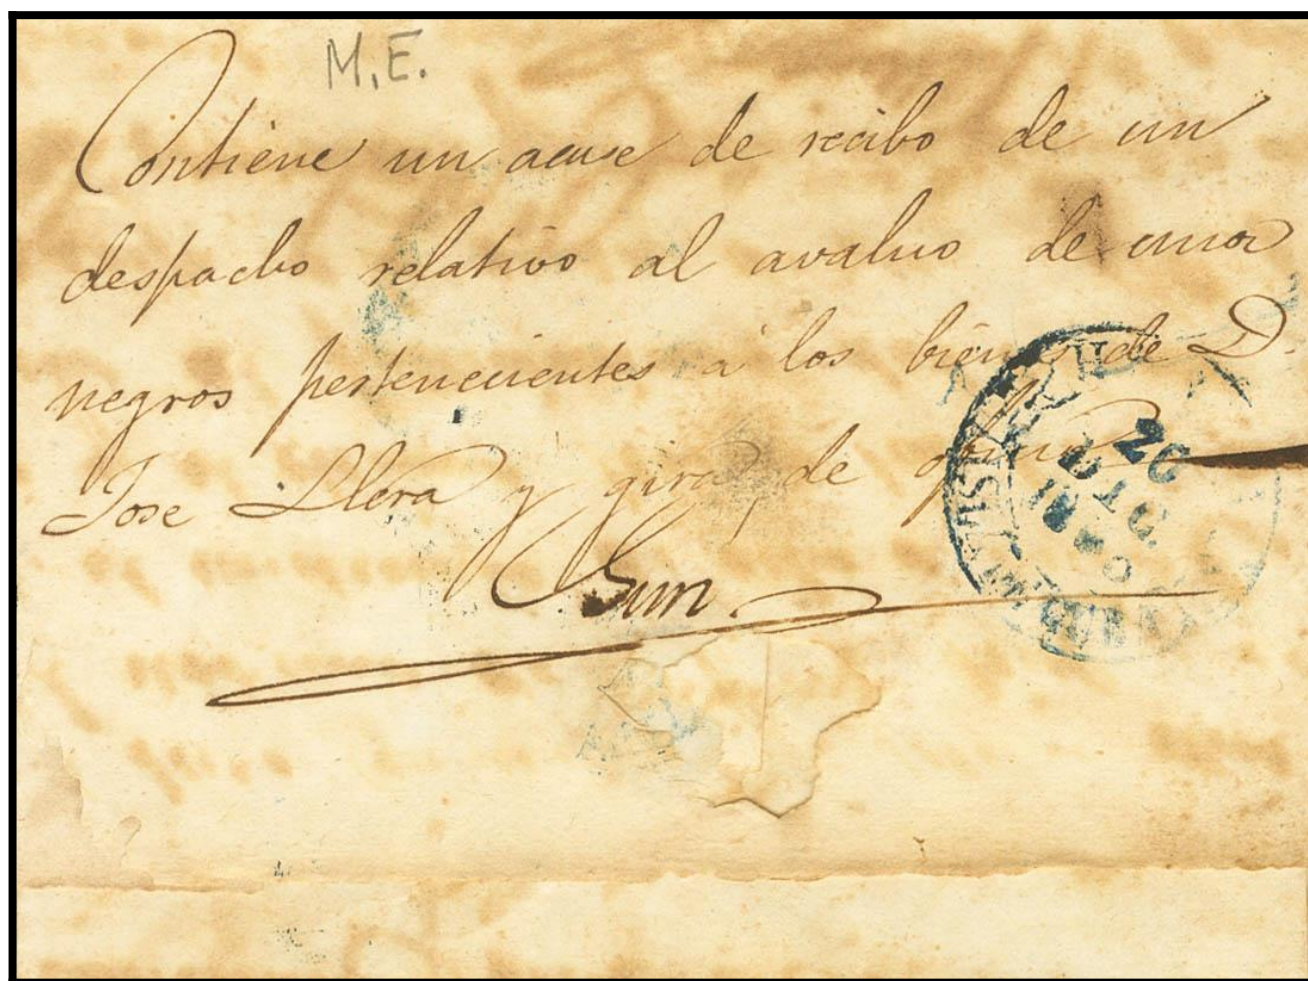 M.E.
Contiene un acuse de recibo de un
despacho relativo al avaluo de unos
negros pertenecientes á los bienes de D.
Jose Llera y gira de oficio
26